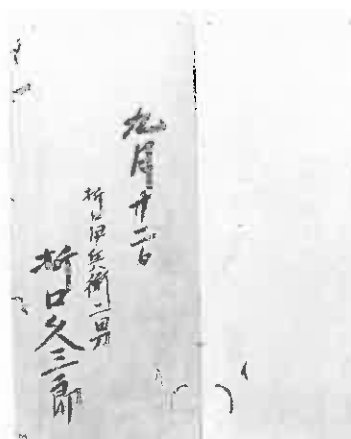 九月廿二日
折口伊兵衛二男
折口久三郎